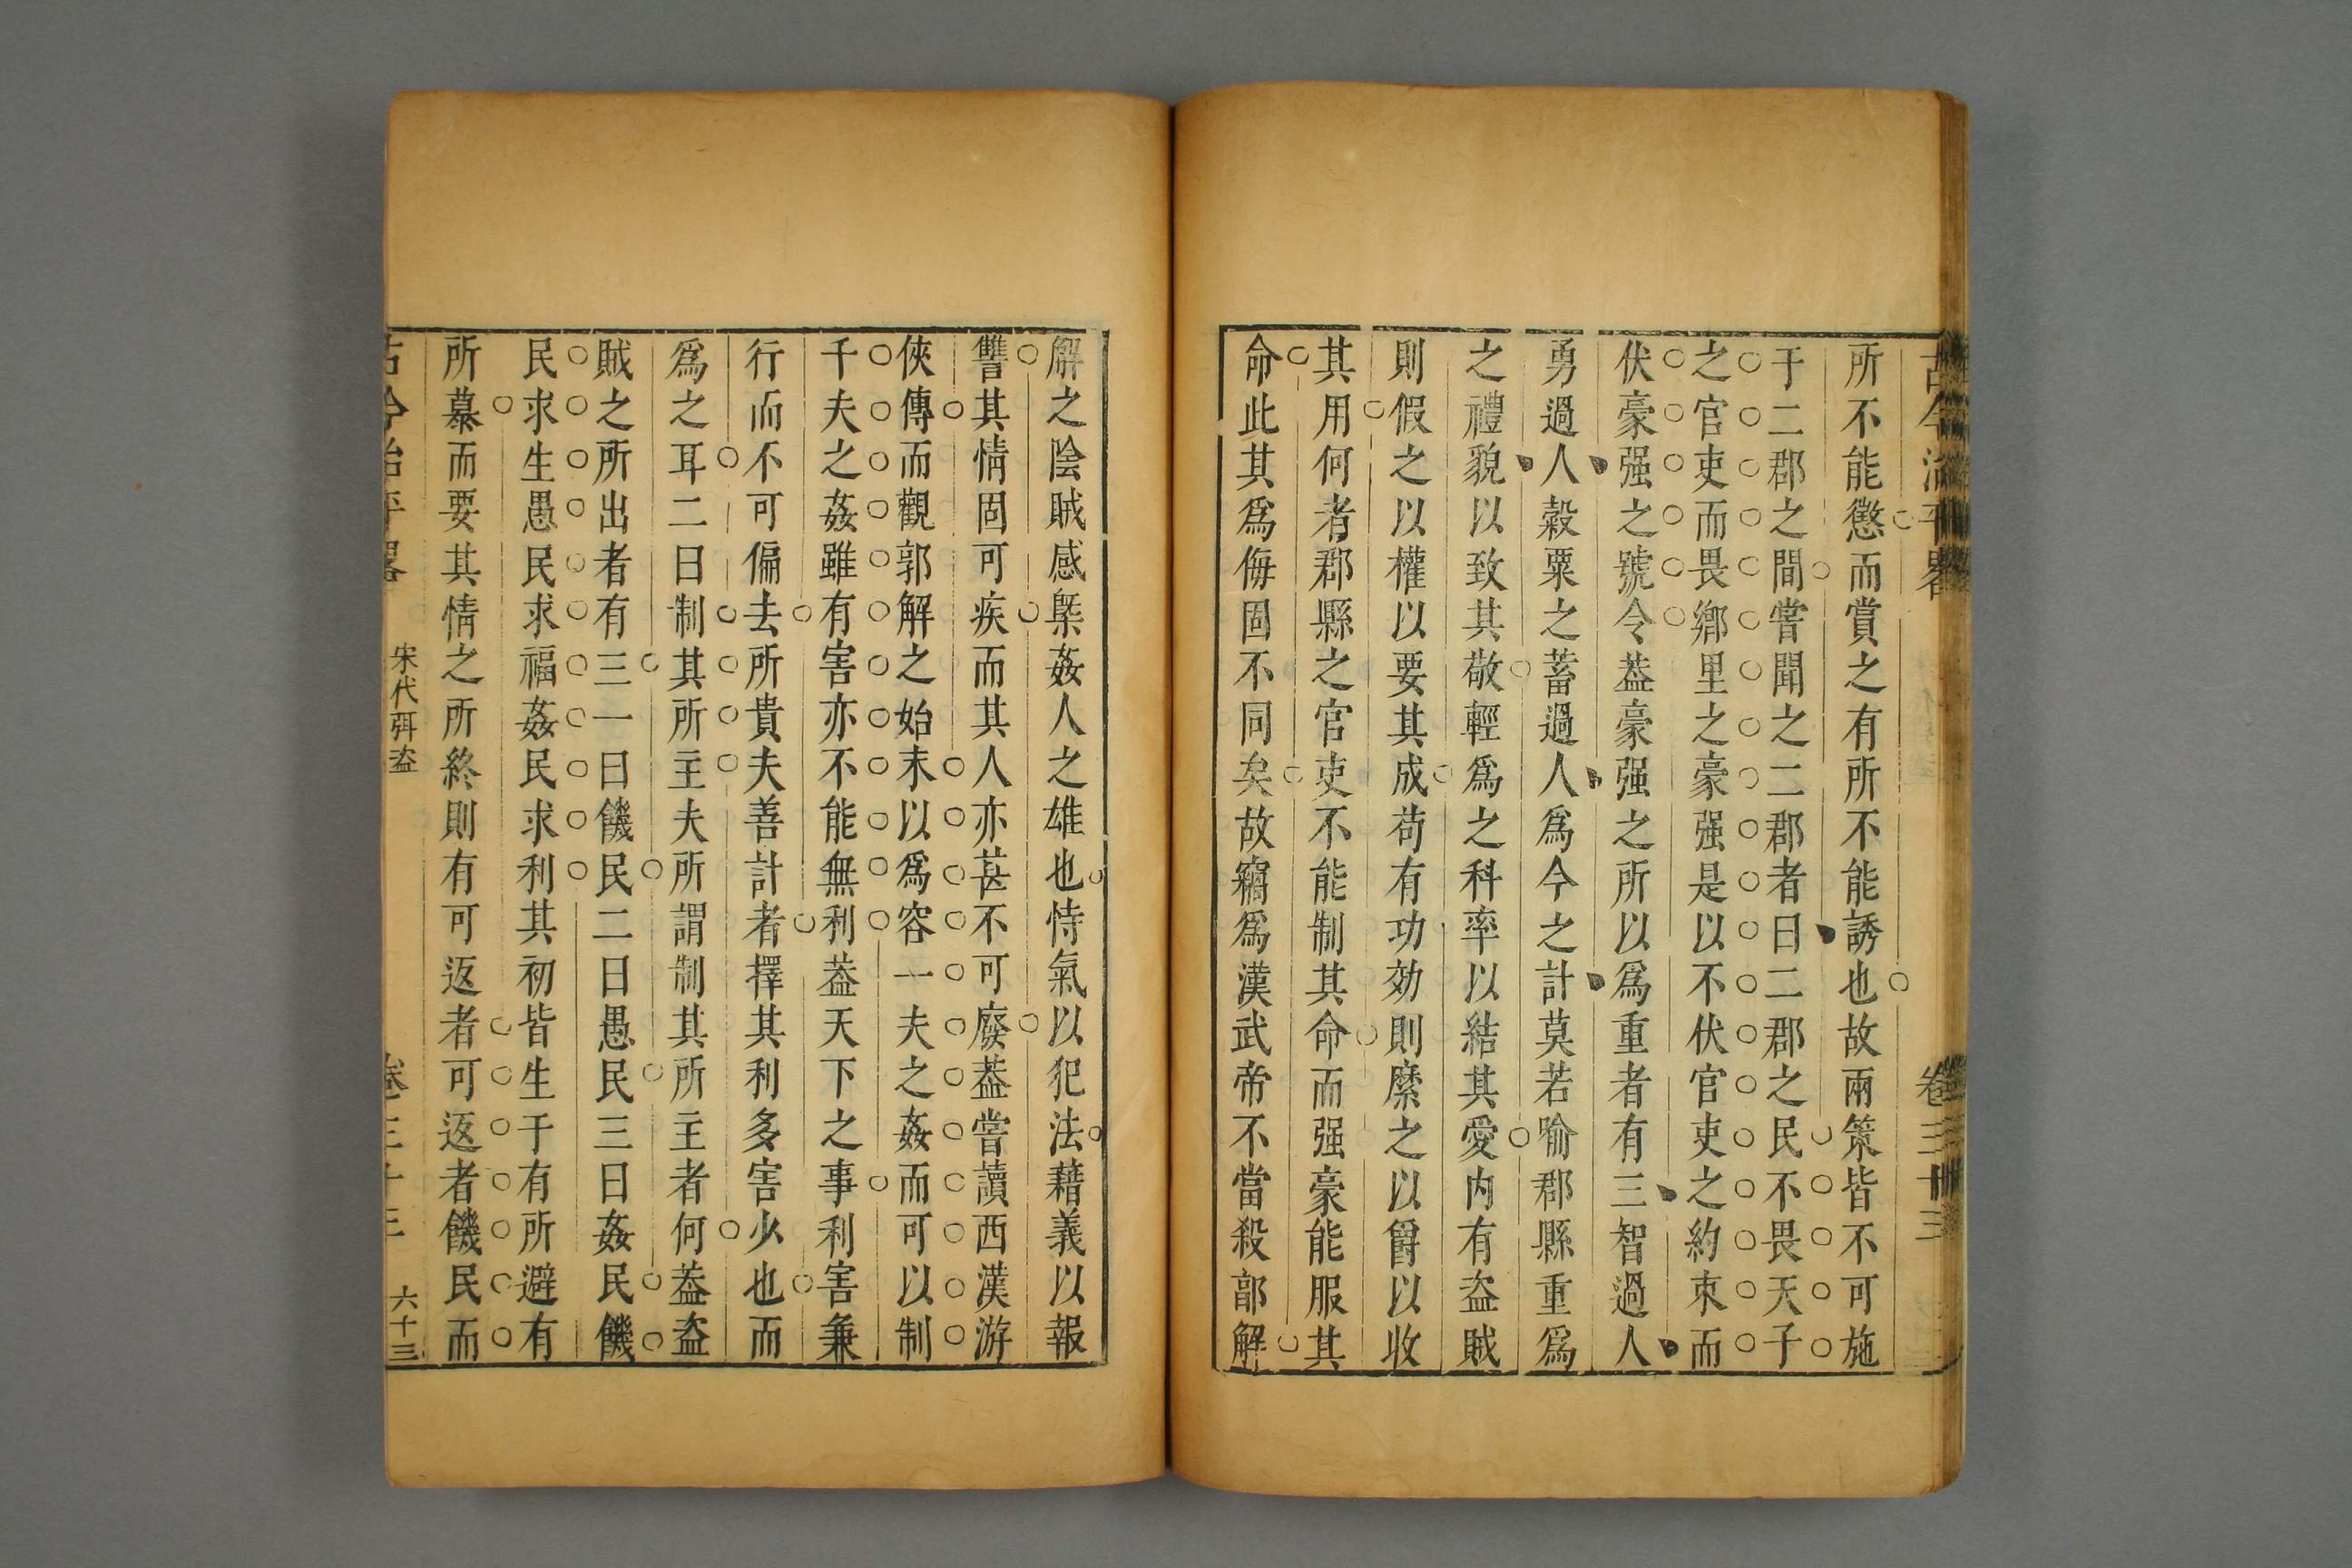 古今治平畧 卷三十三
所不能懲而賞之有所不能誘也故兩策皆不可施
于二郡之間嘗聞之二郡者曰二郡之民不畏天子
之官吏而畏鄉里之豪强是以不伏官吏之約束而
伏豪强之號令葢豪强之所以爲重者有三智過人
勇過人穀粟之蓄過人爲今之計莫若喻郡縣重爲
之禮貌以致其敬輕爲之科率以結其愛内有盗賊
則假之以權以要其成苟有功効則縻之以爵以收
其用何者郡縣之官吏不能制其命而强豪能服其
命此其爲侮固不同矣故竊爲漢武帝不當殺郭解
解之陰賊感槩姦人之雄也恃氣以犯法藉義以報
讐其情固可疾而其人亦甚不可廢葢嘗讀西漢游
俠傳而觀郭解之始末以爲容一夫之姦而可以制
千夫之姦雖有害亦不能無利葢天下之事利害兼
行而不可偏去所貴夫善計者擇其利多害少也而
爲之耳二曰制其所主夫所謂制其所主者何葢盗
賊之所出者有三一曰饑民二曰愚民三曰姦民饑
民求生愚民求福姦民求利其初皆生于有所避有
所慕而要其情之所終則有可返者可返者饑民而
古今治平畧 宋代弭盗 卷三十三 六十三